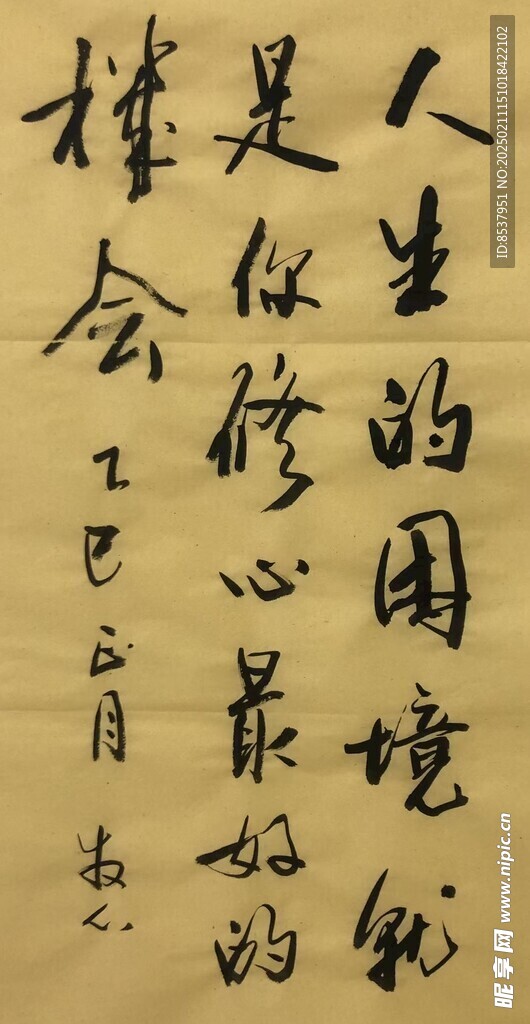 人生的困境就
是你修心最好的
機会 乙巳正月 牧心
ID:8537951 NO:20250211151018422102
昵享网 www.nipic.cn